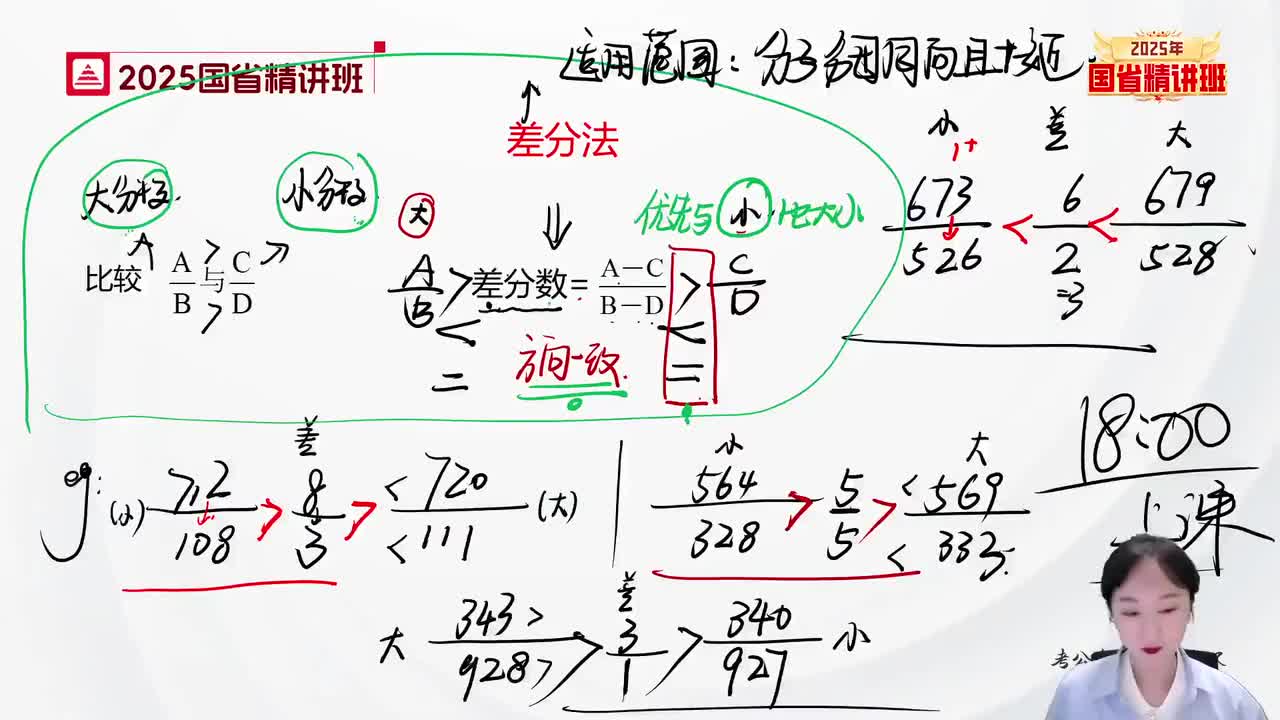 适用范围：分子分母同向且接近.
2025国省精讲班
2025年
国省精讲班
差分法
小 差 大
1+
673/526 < 6/2 < 679/528
=3
大分数 小分数
大
优先与小比大小
比较 A/B > 与 C/D
>
A/B > 差分数= A-C/B-D > C/D
< <
= =
方向一致.
18:00
上课
差
eg: (小) 712/108 > 8/3 > <720/<111 (大)
小 大
564/328 > 5/5 > <569/<333
差
大 343>/928> > 3/1 > 340/927 小
考公